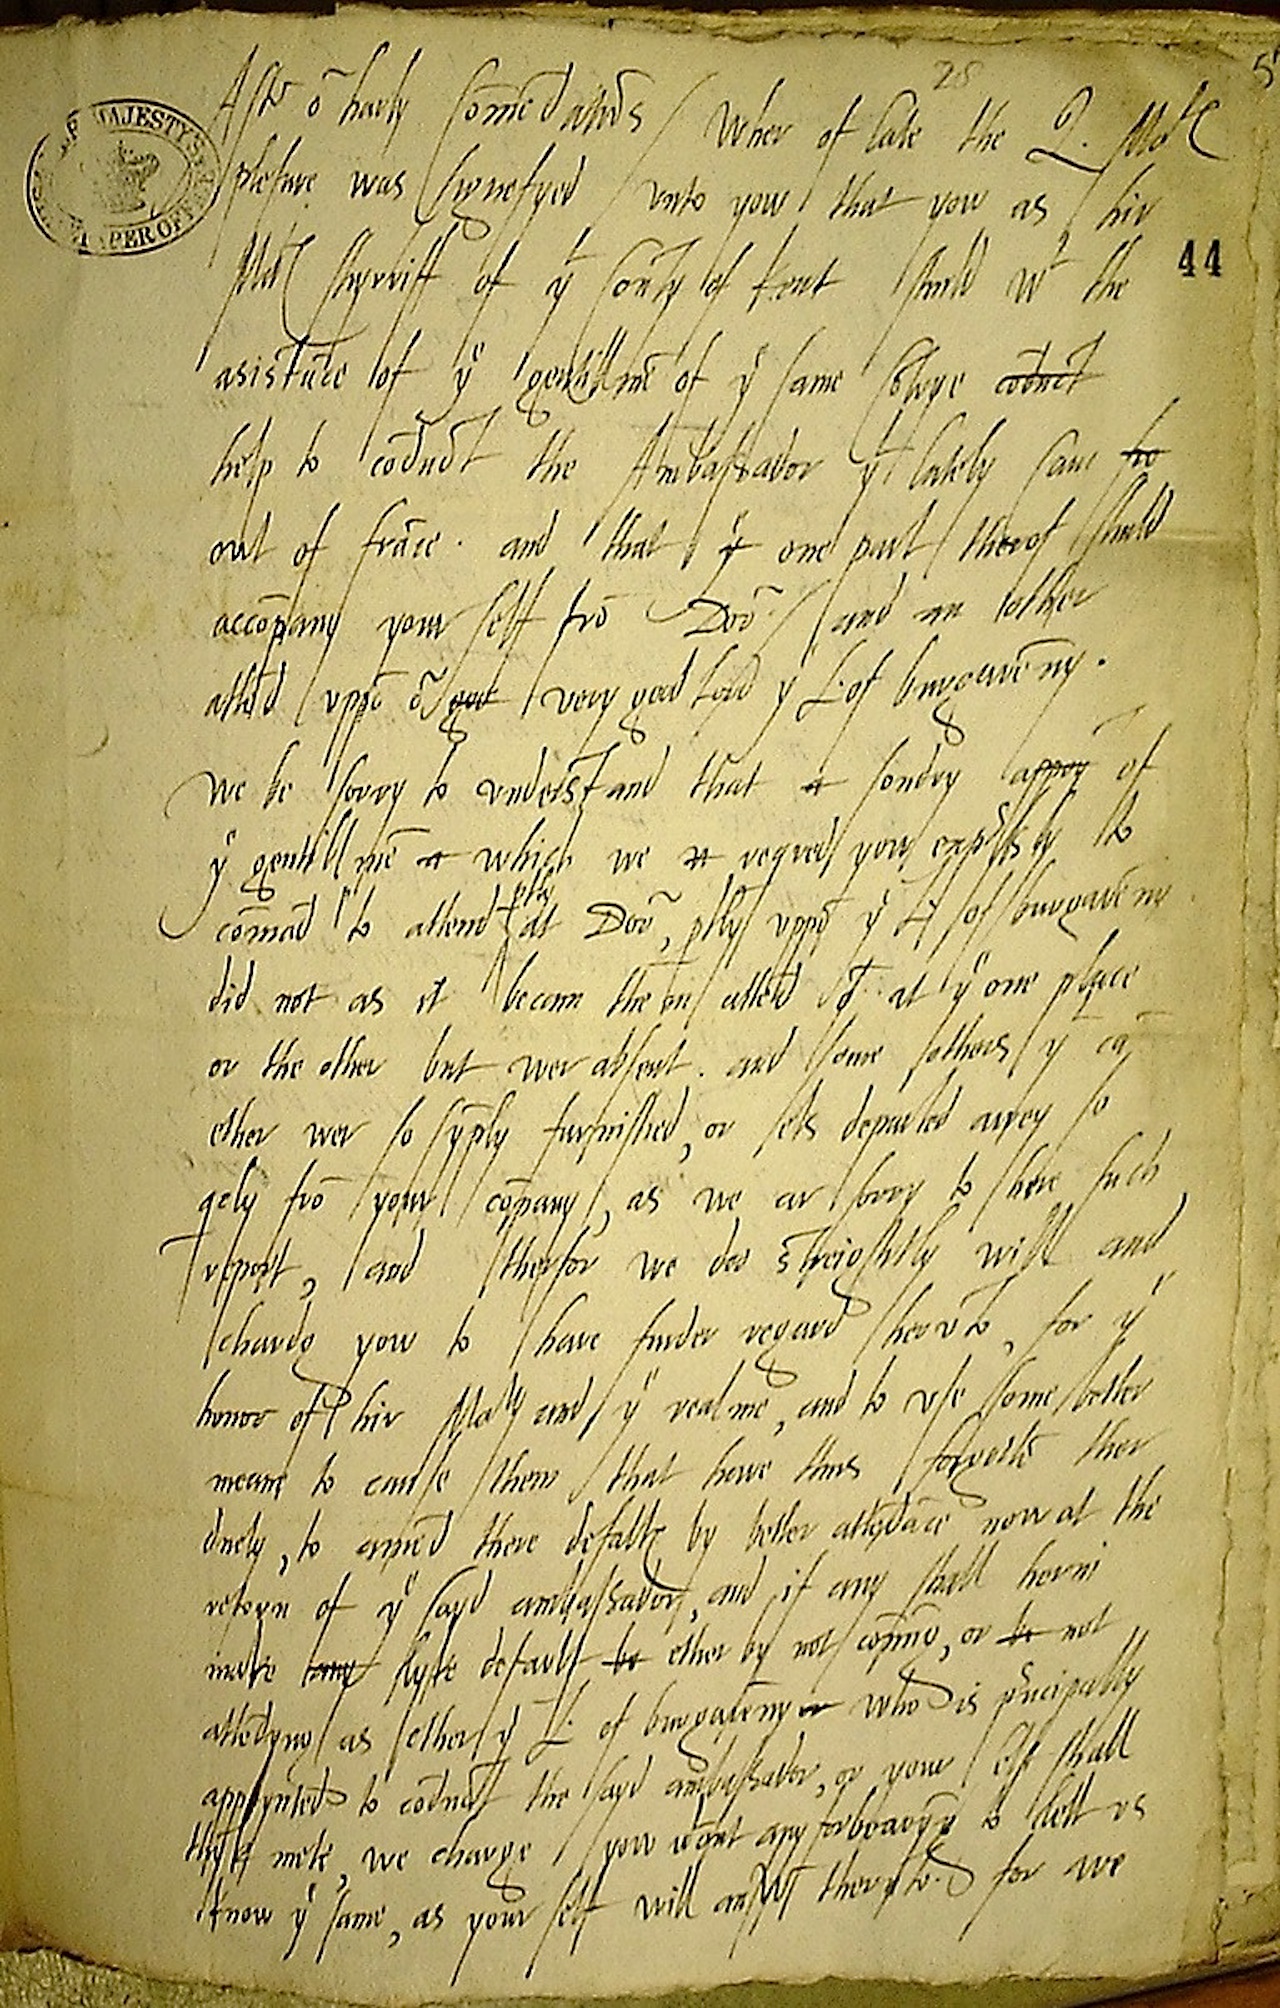 28
5
HER MAJESTY'S STATE PAPER OFFICE
44
Aftr oᵉ harty Comēdatiōs / Wher of late the Q. Matᵉ
plesure was signefyed unto yow that yow as hir
Matᵉ Shyrriff of yᵗ Coūty of Kent shuld wᵗ the
asistāce of yᵉ gentill mē of yᵉ same Shyre cōduct
help to cōduct the Ambassador yᵗ lately cam fro
out of frāce . and that yᵉ one part therof shuld
accōpany your self frō Dovᵉ / and an other
attēd uppō oᵉ good very good lord yᵉ L. of burgavēny .
we be sorry to understand that sondry appoy of
yᵉ gentill mē which we reqred yow expssly to
cōmād to attend ptly at Dovᵉ, ptly uppō yᵉ L. of burgavēny
did not as it becam them attēd at yᵉ one place
or the other but wer absent . and some others yᵗ cā
ether wer so sȳply furnished, or els departed awey so
frō your cōpany, as we ar sorry to here such
report, and therfor we doo streightly will and
chardg yow to have furder regard hervnto, for yᵉ
honor of hir Maᵗʸ and yᵉ realme, and to use some better
meane to cause them that have thus forgottē ther
duety, to amēd there defalts by better attēdāce now at the
retorn of yᵉ sayd ambassador, and if any shall herin
make any lyke default be ether by not cōming, or be not
attēdyng as ether yᵉ L. of burgavēny or who is prīcipally
appoynted to cōduct the sayd ambassador, or your self shall
thynk mete, we charge yow wᵗout any forbearyng to lett us
know yᵉ same, as your self will answer therunto . for we